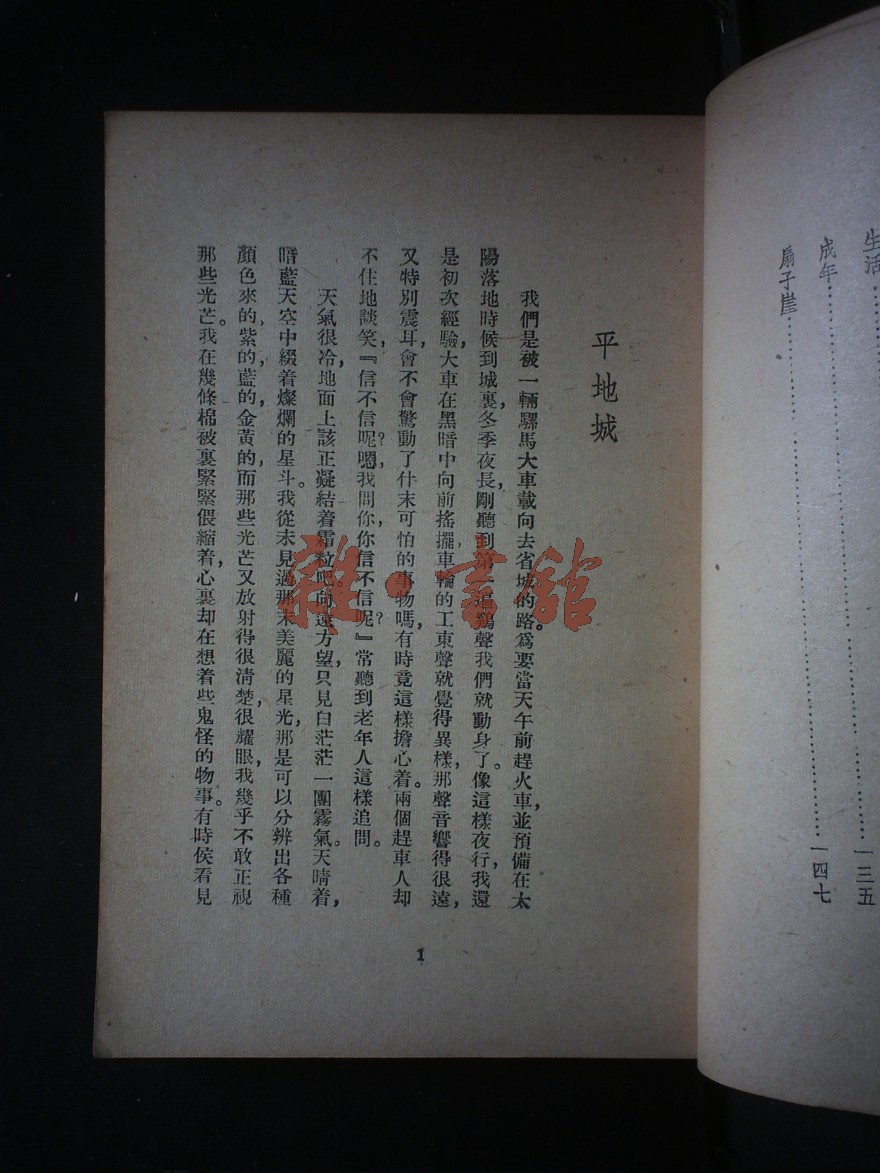 生活……一三五
成年……一四七
扇子崖……
平地城
我們是被一輛騾馬大車載向去省城的路。爲要當天午前趕火車，並預備在太
陽落地時候到城裏，冬季夜長，剛聽到第一遍鷄聲我們就動身了。像這樣夜行，我還
是初次經驗，大車在黑暗中向前搖擺，車輪的工東聲就覺得異樣，那聲音響得很遠，
又特別震耳，會不會驚動了什末可怕的事物嗎，有時竟這樣擔心着。兩個趕車人却
不住地談笑，『信不信呢？嗯，我問你，你信不信呢？』常聽到老年人這樣追問。
天氣很冷，地面上該正凝結着霜粒吧。向遠方望，只見白茫茫一團霧氣。天晴着，
暗藍天空中綴着燦爛的星斗。我從未見過那末美麗的星光，那是可以分辨出各種
顏色來的，紫的，藍的，金黃的，而那些光芒又放射得很清楚，很耀眼，我幾乎不敢正視
那些光芒。我在幾條棉被裏緊緊偎縮着，心裏却在想着些鬼怪的物事。有時侯看見
1
雜·書舘